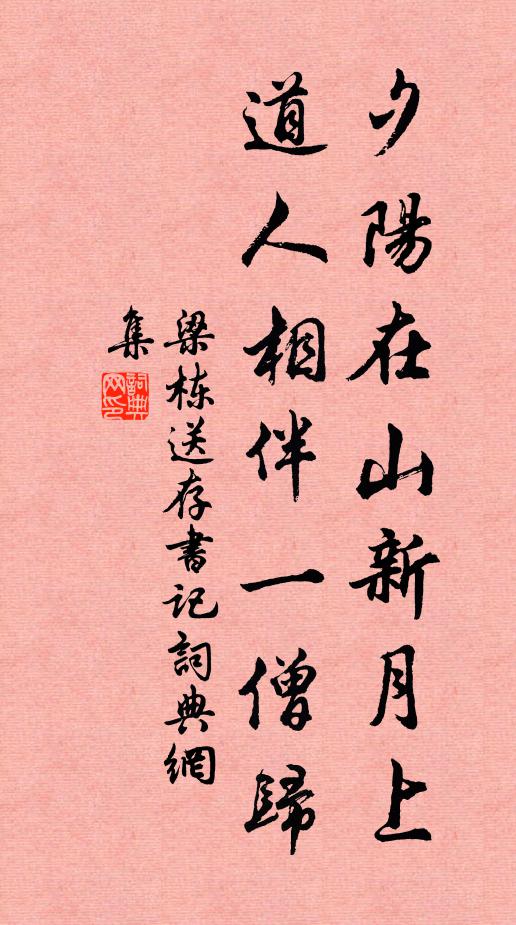 夕陽在山新月上
道人相伴一僧歸
梁栋送存書记詞典網
集
詞典网印